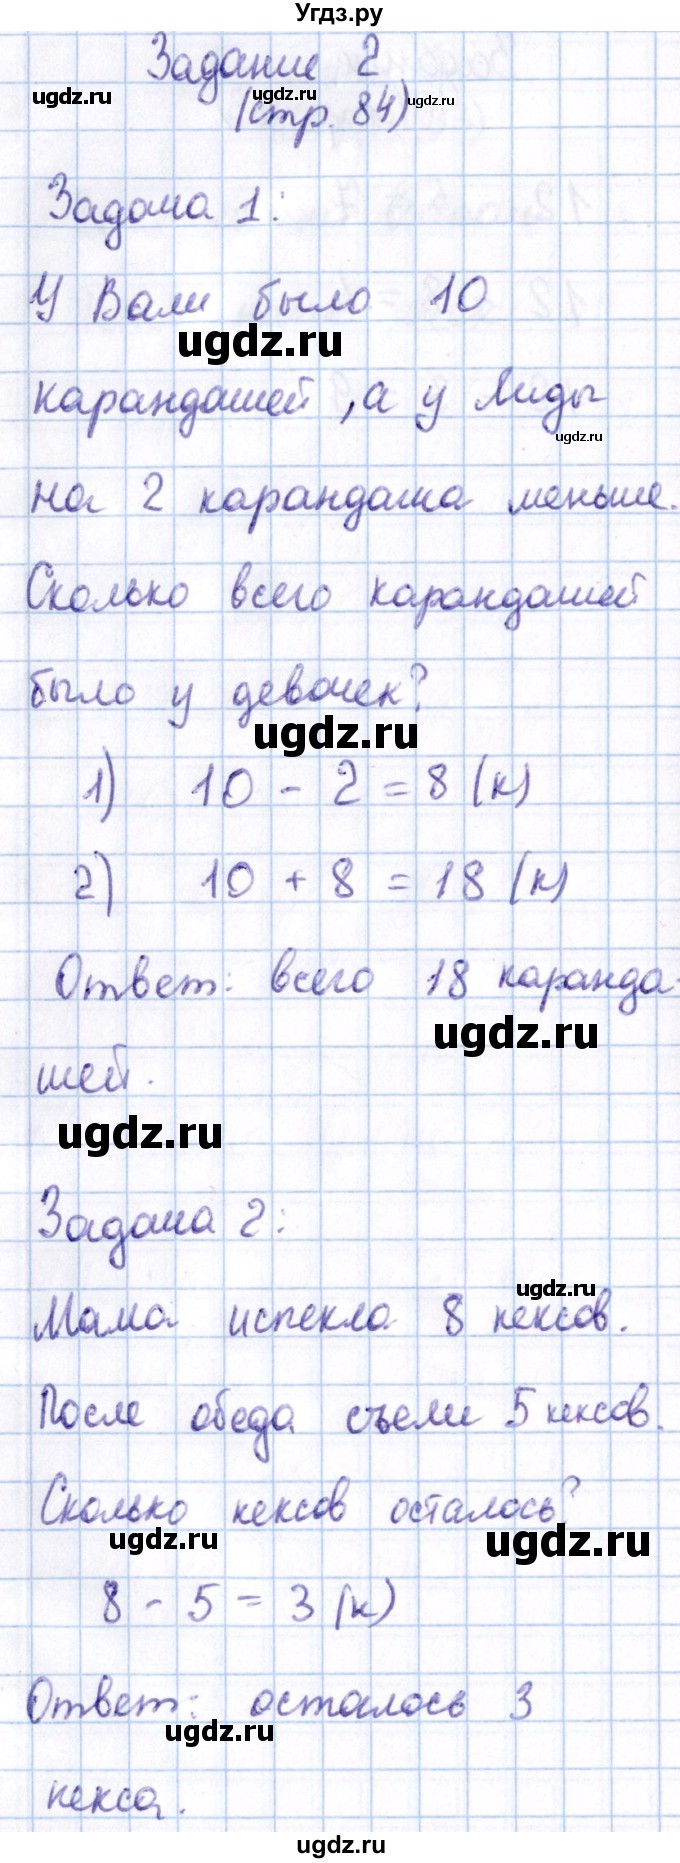 Угдз.ру
Задание 2
ugdz.ru ugdz.ru ugdz.ru
(стр. 84)
Задача 1:
У Вали было 10
ugdz.ru
карандашей, а у Лиды
ugdz.ru
на 2 карандаша меньше.
Сколько всего карандашей
было у девочек?
ugdz.ru
1) 10 - 2 = 8 (к)
2) 10 + 8 = 18 (к)
Ответ: всего 18 каранда-
ugdz.ru
шей.
ugdz.ru
Задача 2:
ugdz.ru
Мама испекла 8 кексов.
После обеда съели 5 кексов.
Сколько кексов осталось?
ugdz.ru ugdz.ru
8 - 5 = 3 (к)
Ответ: осталось 3
ugdz.ru
кекса.
ugdz.ru